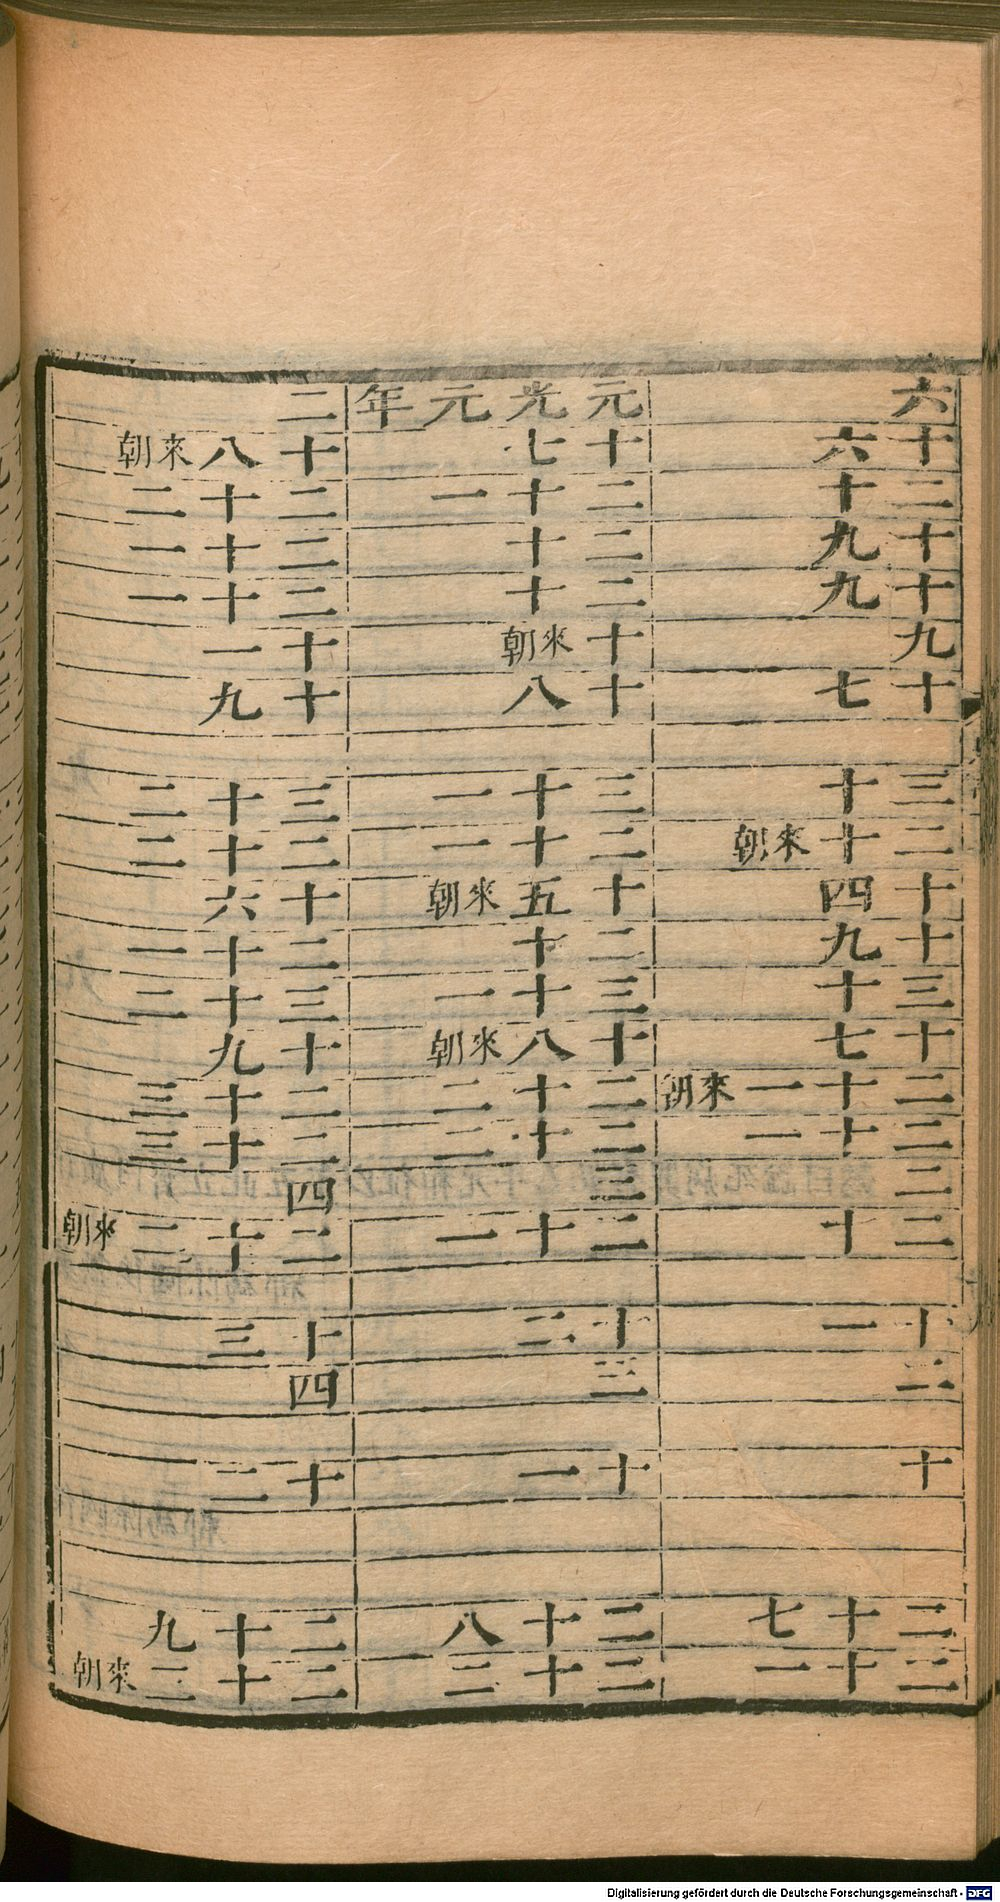 六
十六
二十
十九
十九
九
十七
三十
二十來朝
十四
十九
三十
十七
二十一來朝
二十一
二
二十
十一
二
十
二十七
二十一
元光元年
十七
二十一
二十
二十
十來朝
十八
三十一
二十一
十五來朝
二十
三十一
十八來朝
二十二
二十二
三
二十一
十二
三
十一
二十八
二十二
二
十八來朝
二十二
二十一
二十一
十一
十九
三十二
二十二
十六
二十一
三十二
十九
二十三
二十三
四
二十二來朝
十三
四
十二
二十九
二十二來朝
Digitalisierung gefördert durch die Deutsche Forschungsgemeinschaft - DFG